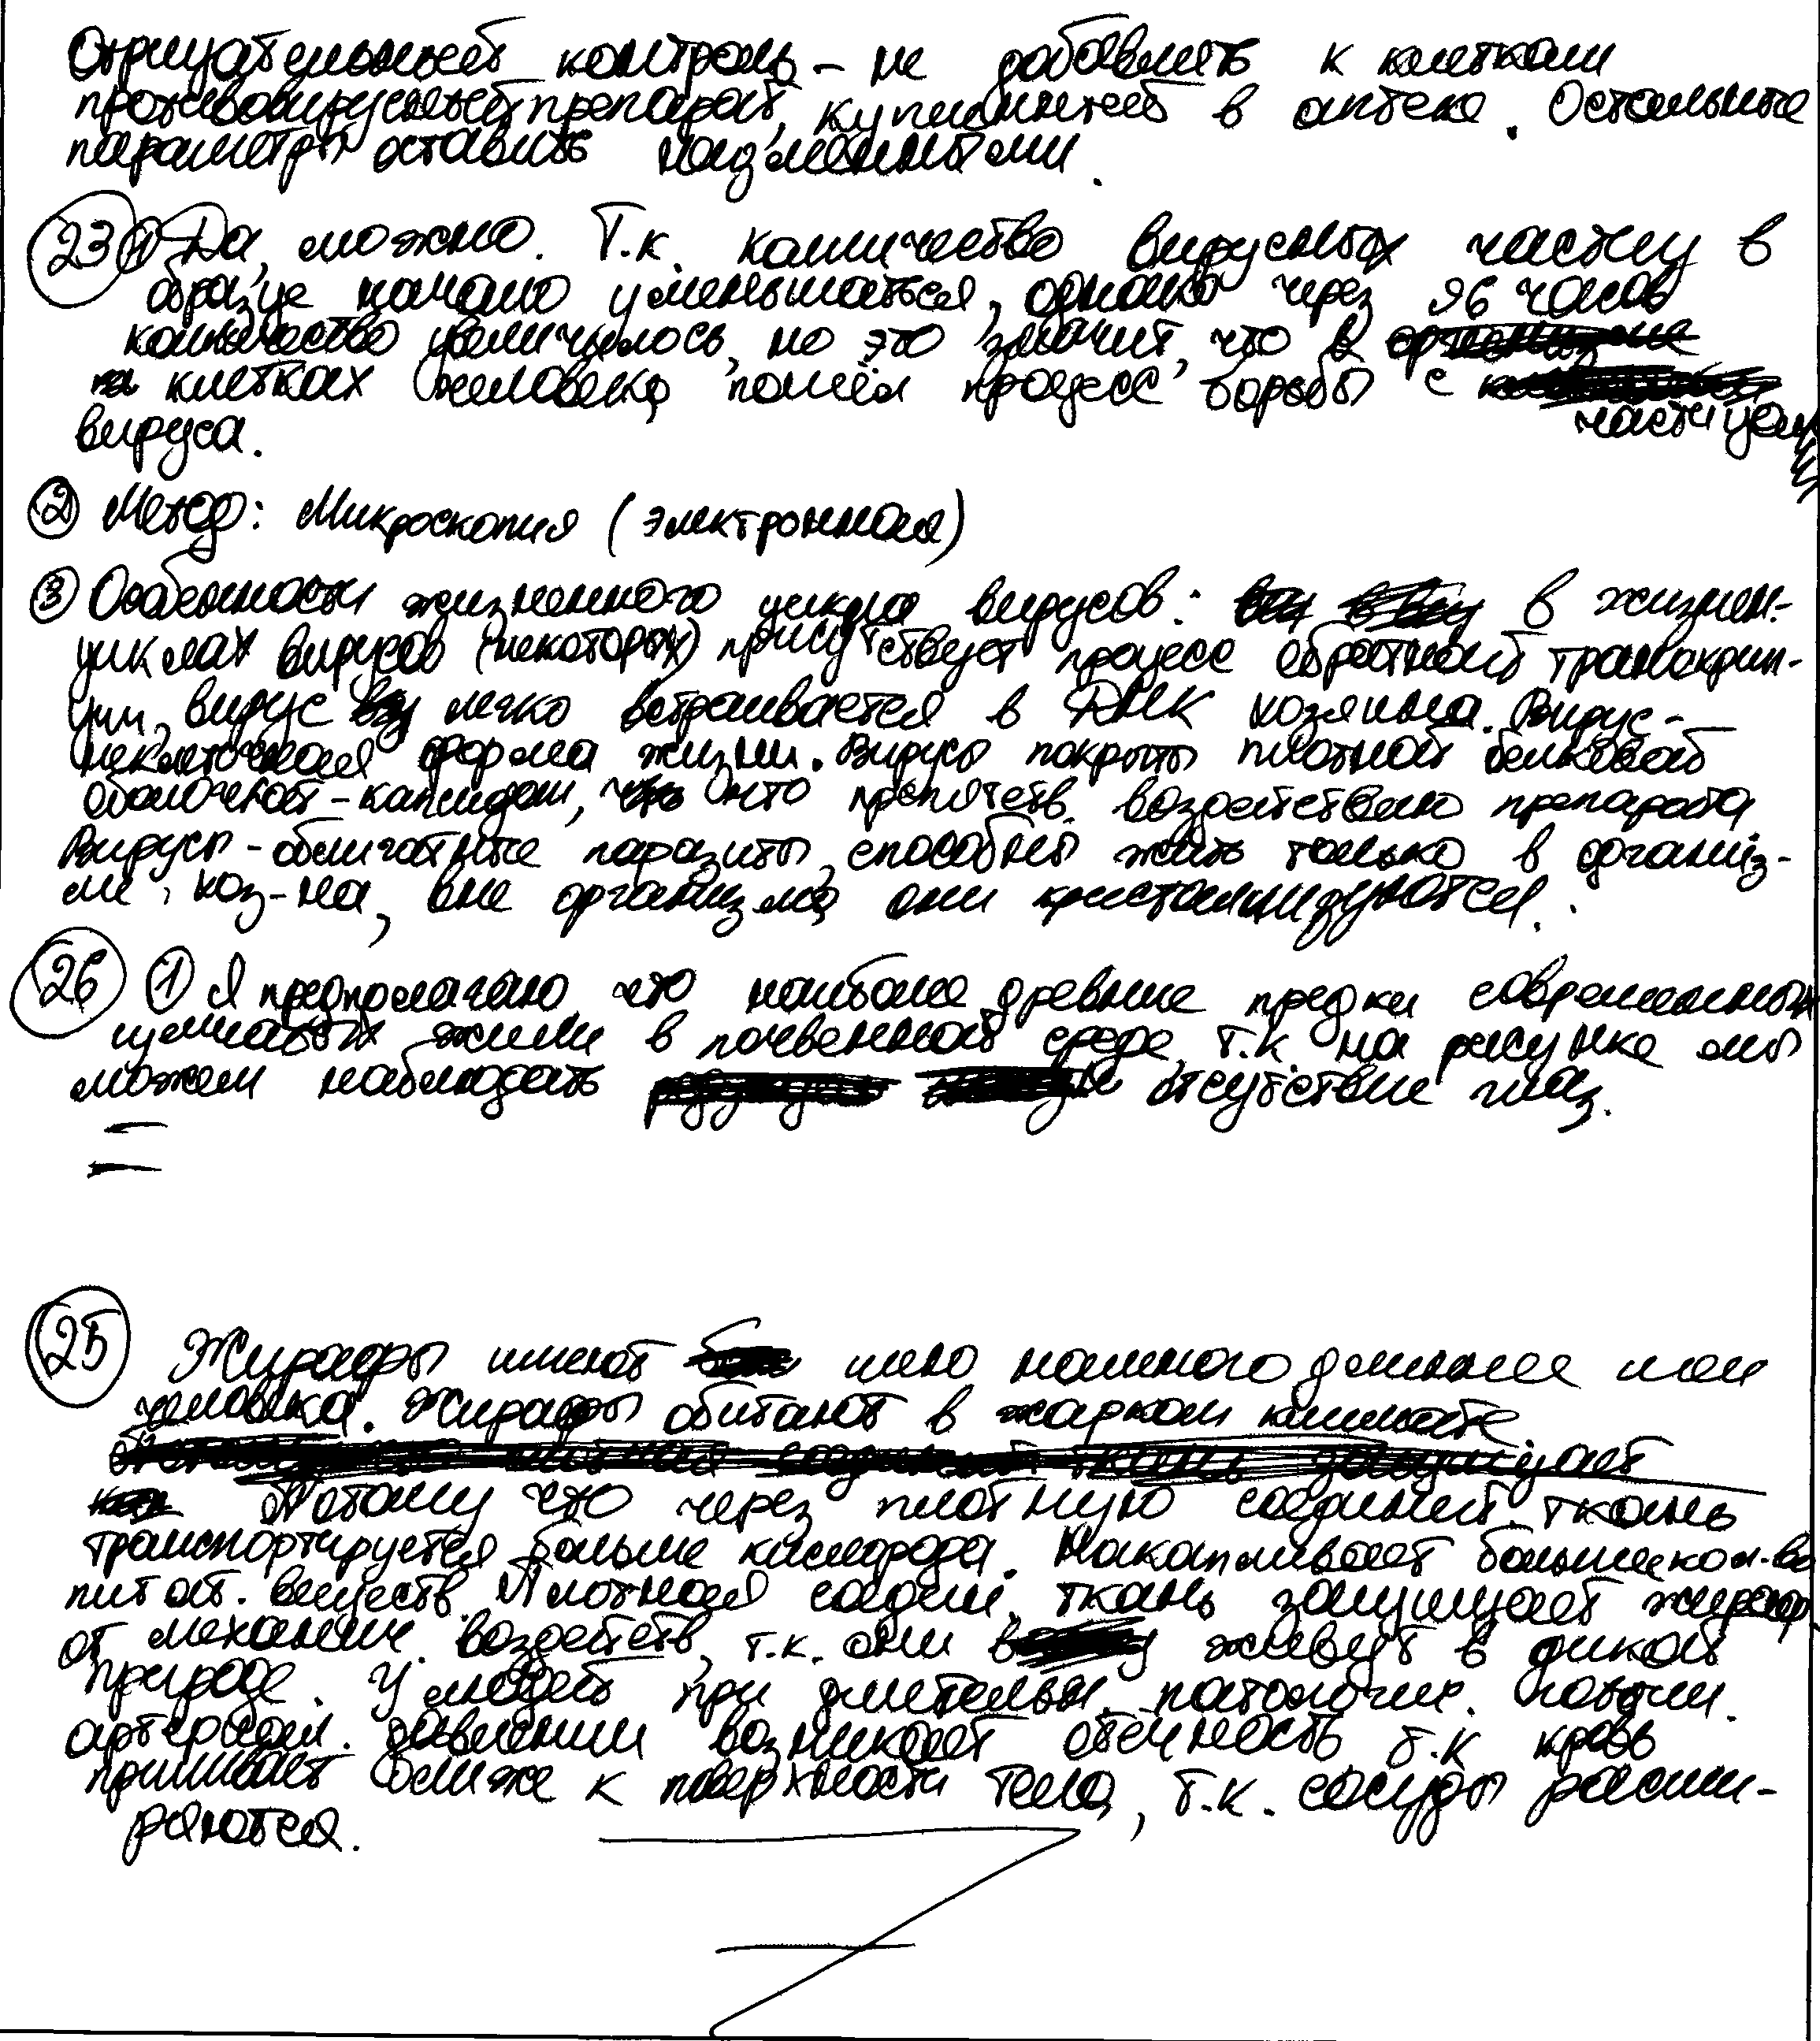 Отрицательный контроль - не добавлять к клеткам
противовирусный препарат, купленный в аптеке. Остальные
параметры оставить неизменными.
23 1 Да, можно. Т.к. количество вирусных частиц в
образце начало уменьшаться, однако через 96 часов
количество увеличилось, но это значит, что в
клетках человека пошёл процесс борьбы с
частицами
вируса.
2 Метод: Микроскопия (электронная)
3 Особенности жизненного цикла вирусов: в жизнен.
циклах вирусов (некоторых) присутствует процесс обратной транскрип-
ции, вирус легко встраивается в ДНК хозяина. Вирус-
неклеточная форма жизни. Вирусы покрыты плотной белковой
оболочкой - капсидом, что препятств. воздействию препарата
Вирусы - облигатные паразиты, способны жить только в организ-
ме хоз-на, вне организма они кристаллизуются.
26 1 Я предполагаю, что наиболее древние предки современных
жили в почвенной среде, т.к. на рисунке мы
можем наблюдать отсутствие глаз.
25 Жирафы имеют шею намного длиннее шеи
человека. Жирафы обитают в жарком климате.
ткань защищает
Потому что через плотную соединит. ткань
транспортируется больше кислорода. Накапливает больше кол-во
питат. веществ. Плотная соедин. ткань защищает жираф
от механич. воздейств, т.к. они живут в дикой
природе. У людей при длительн. патологич.
артериал. давлении возникает отечность т.к кровь
приливает ближе к поверхности тела, т.к. сосуды расши-
ряются.